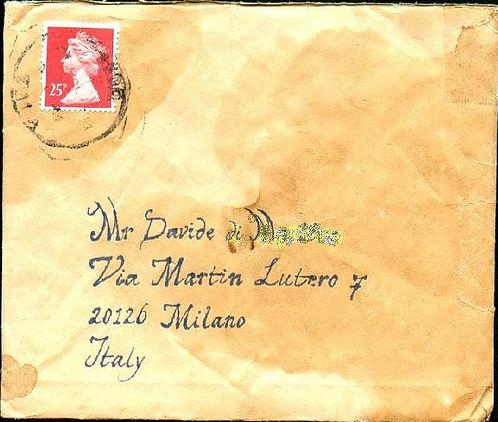 25P
Mr Davide di
Via Martin Lutero 7
20126 Milano
Italy